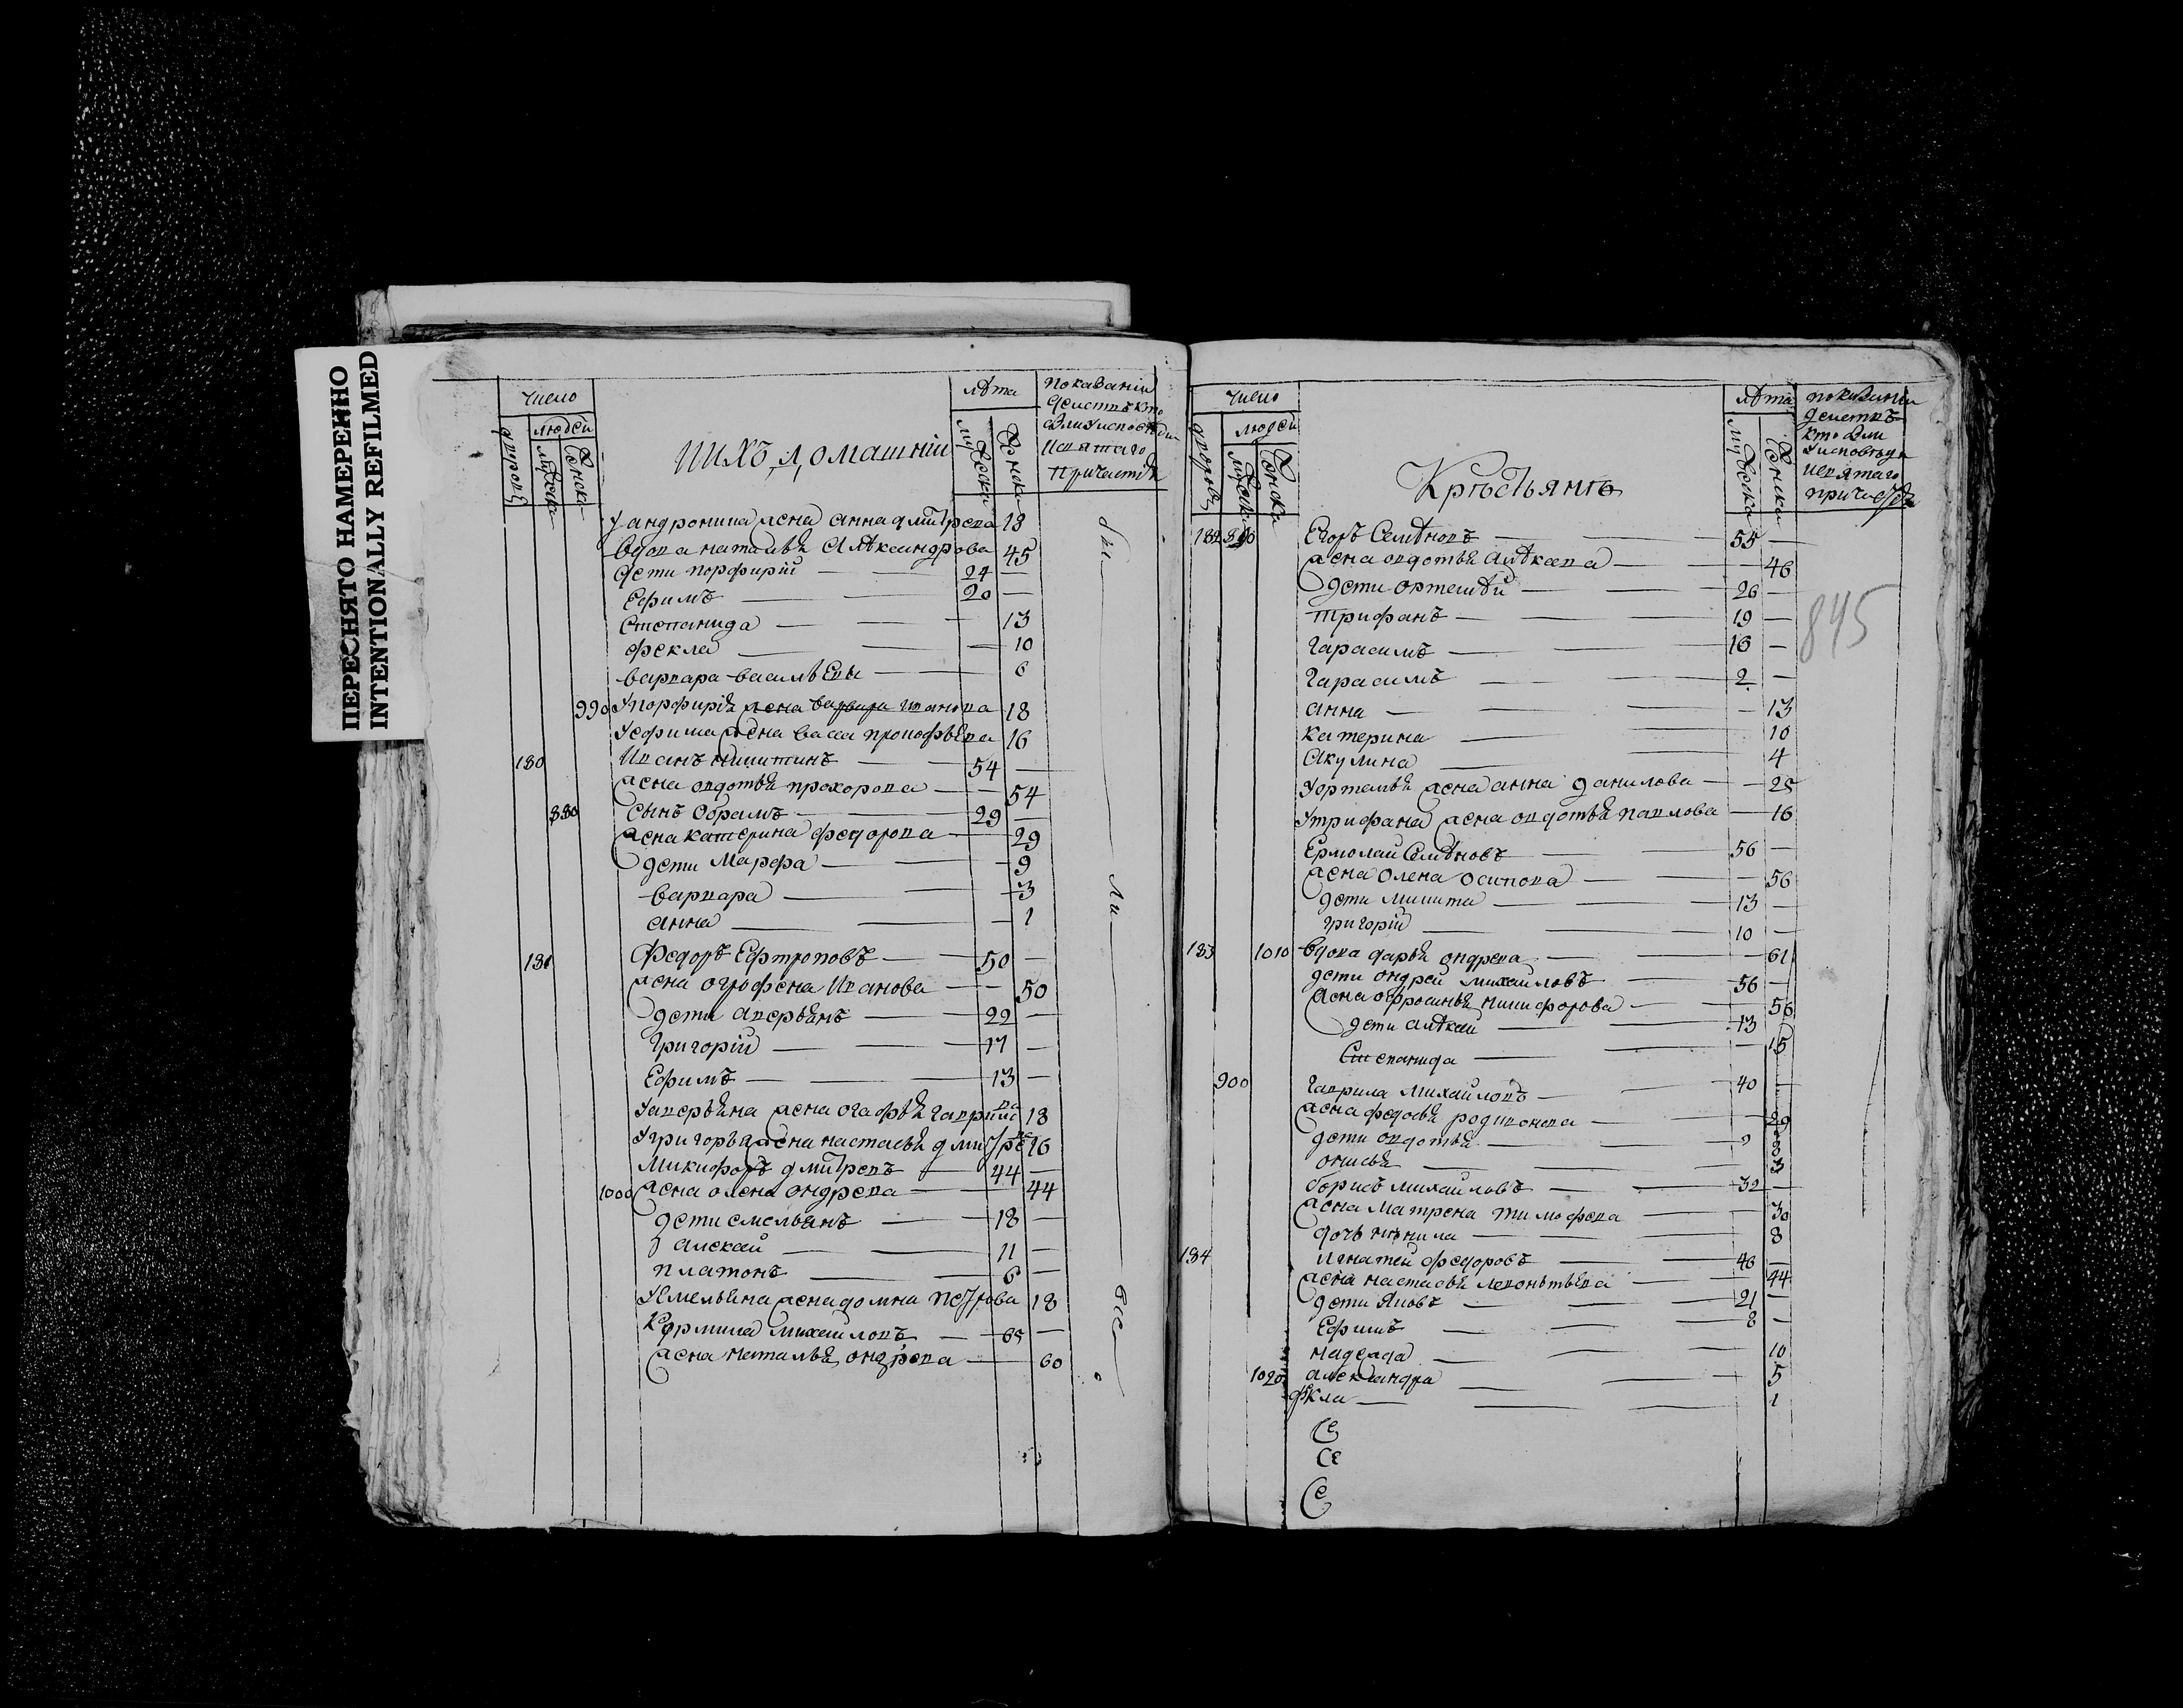 ПЕРЕСНЯТО НАМЕРЕННО
INTENTIONALLY REFILMED
число
людей
дворовъ
мужеска
женска
ИИХЪ ДОМАШНІИ
лѣта
мужеска
женска
показаніи
действъ кто
былъ у исповеди
и святаго
Причастія
у андроника жена анна дмитрева 18
вдова наталья Алѣксандрова 45
дети порфирій 24
Ефимъ 20
Степанида 13
фекла 10
варвара васильевы 6
990 у порфирія жена варвара иванова 18
у ефима жена васа прокофьева 16
180 Иванъ никитинъ 54
жена овдотья прохорова 54
880 сынъ обрамъ 29
жена катерина федорова 29
дети Марфа 9
варвара 3
анна 1
181 Федоръ Ефтроповъ 50
жена огрофена Иванова 50
дети аверьянъ 22
Григорій 17
Ефимъ 13
у аверьяна жена огафья гаврилова 18
у григорья жена настасья дмитрева 16
Микифоръ дмитревъ 44
1000 жена олена ондрева 44
дети емельянъ 18
алексей 11
платонъ 6
у Емельяна жена домна петрова 18
михайловъ 65
жена наталья ондрева 60
были
все
число
людей
дворовъ
мужеска
женска
Крѣстьянѣ
лѣта
мужеска
женска
показаніи
действъ
кто были
у исповеди
и святаго
причастія
845
182 890 Егоръ Семѣновъ 55
жена овдотья Алѣксева 46
дети ортемѣй 26
трифанъ 19
гарасимъ 16
гарасимъ 2
анна 13
катерина 10
Окулина 4
у ортемья жена анна данилова 25
у трифана жена овдотья павлова 16
Ермолай Семѣновъ 56
жена Олена Осипова 56
дети никита 13
григорій 10
183 1010 вдова дарья ондрева 61
дети ондрей михайловъ 56
жена офросинья никифорова 56
дети алѣксей 13
Степанида 15
900 гаврила Михайловъ 40
жена федосья родионова 29
дети овдотья 8
онисья 3
борисъ михайловъ 32
жена Матрена тимофева 30
дочь 8
184 игнатей федоровъ 46
жена настасья леоньтьева 44
дети Яковъ 21
Ефимъ 8
надежда 10
1020 александра 5
фекла 1